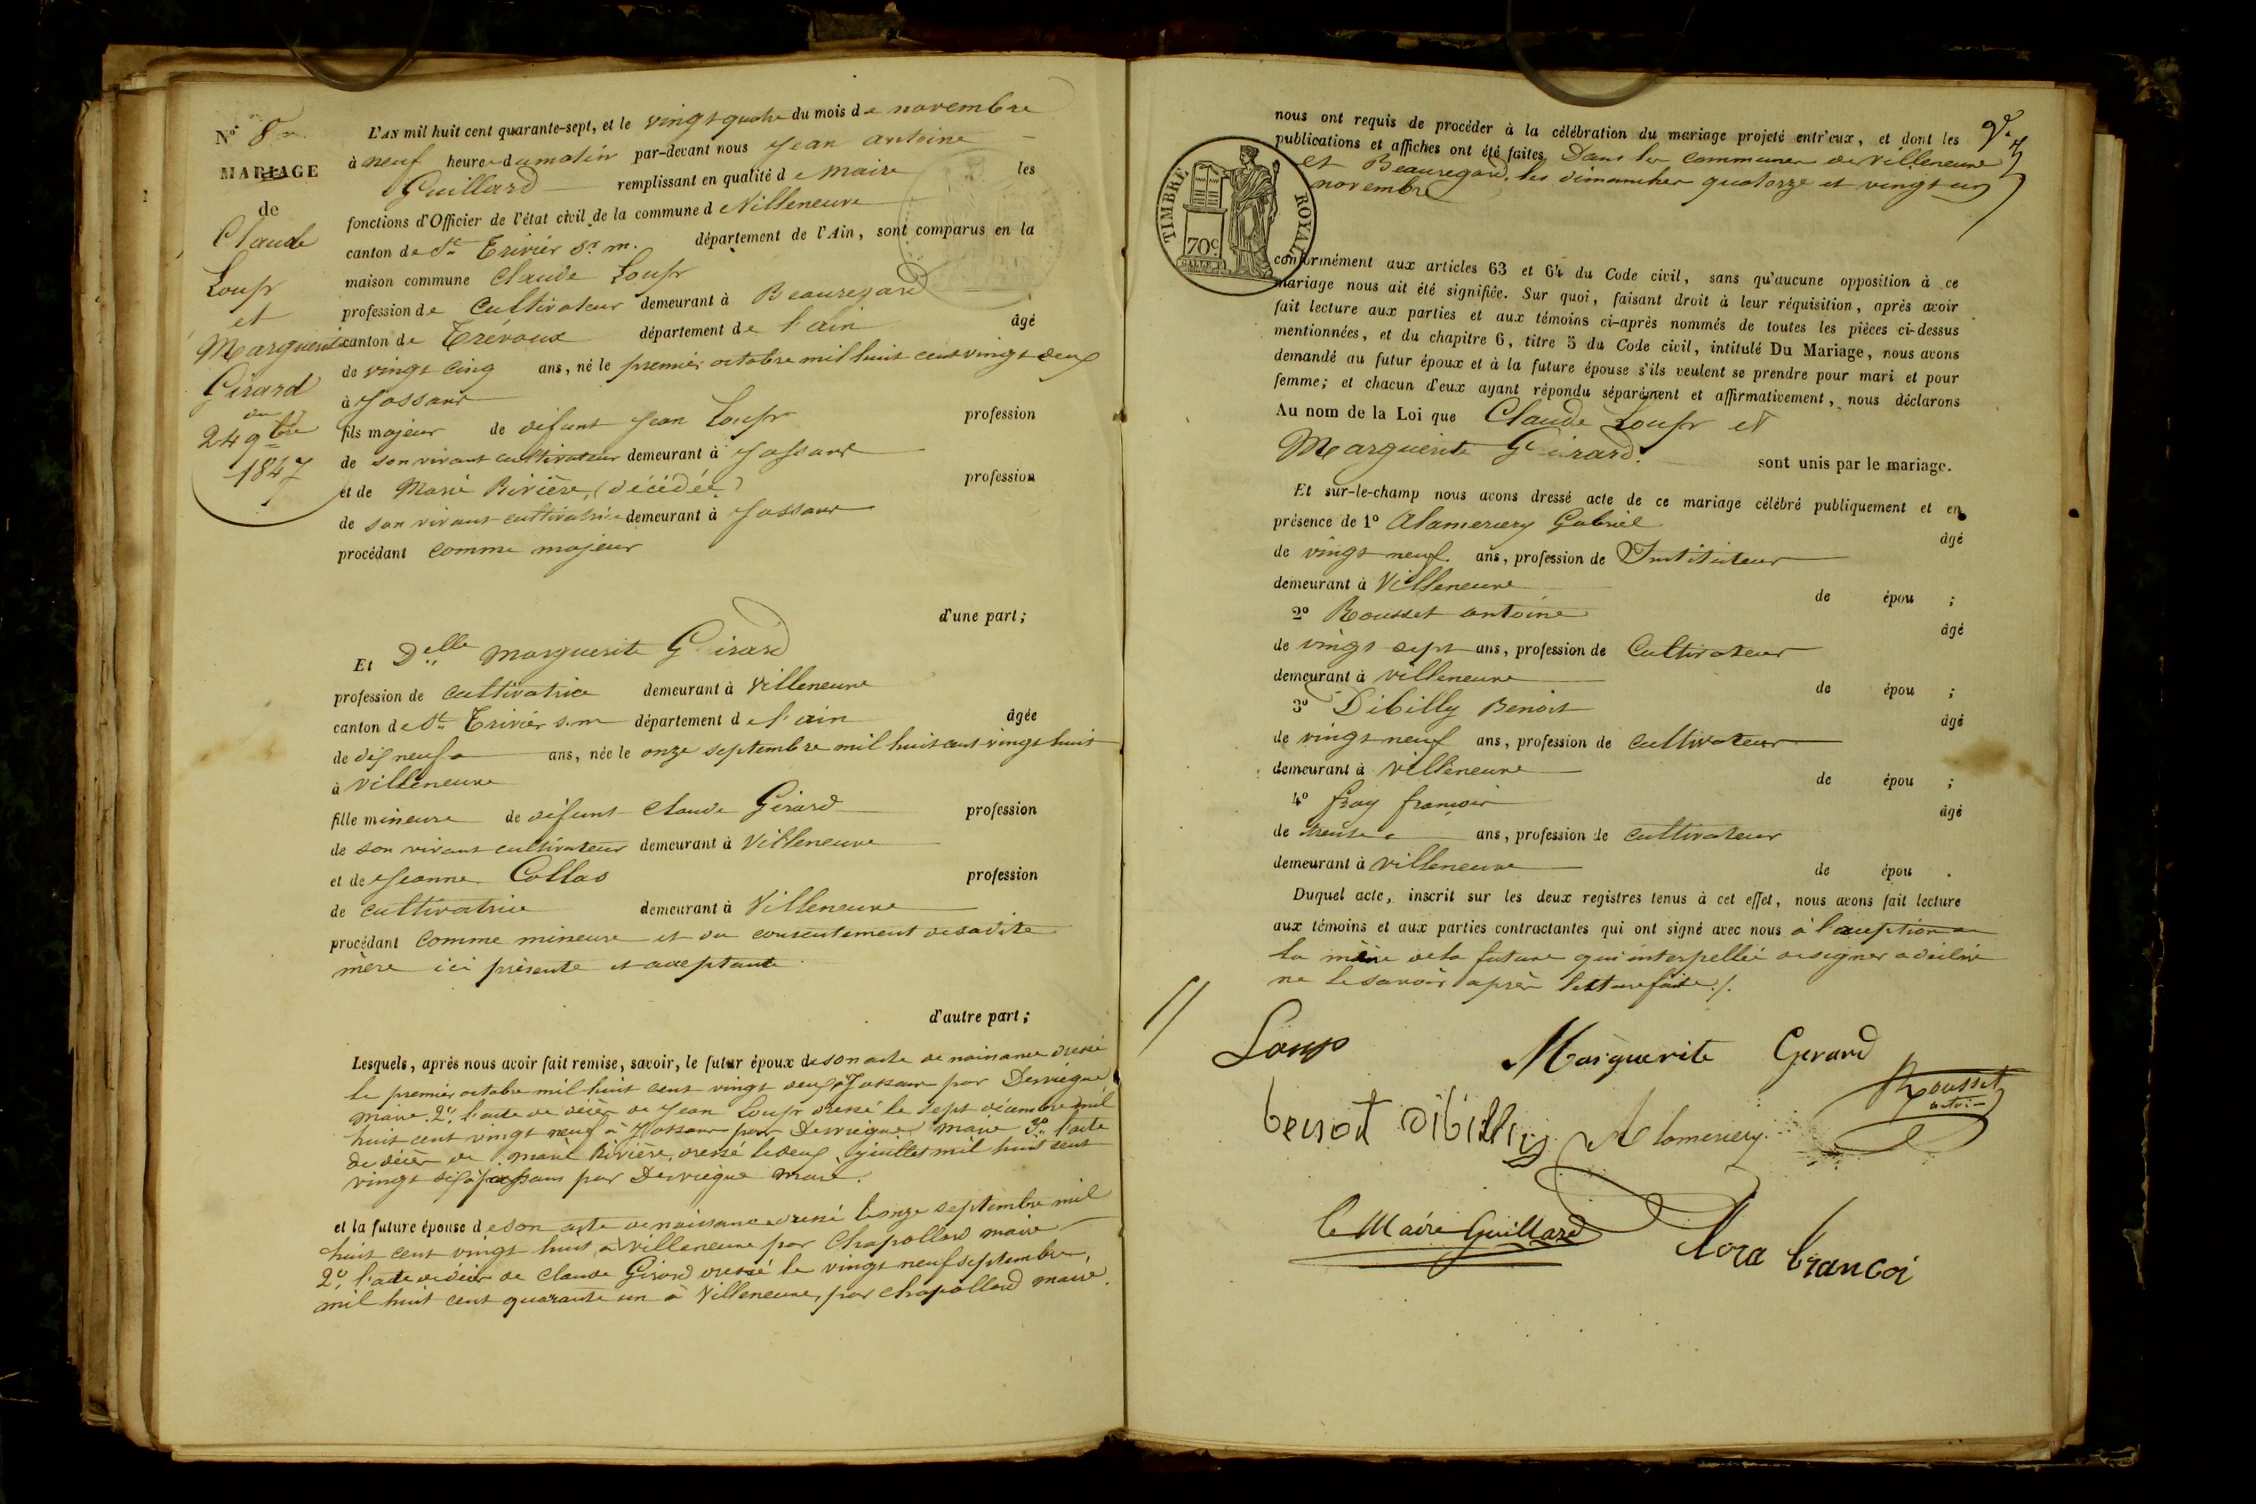 N° 8
MARIAGE
de
Claude
Loup
et
Marguerite
Girard
du
24 9bre
1847
L'AN mil huit cent quarante-sept, et le vingt quatre du mois de novembre
à neuf heures du matin par-devant nous Jean antoine
Guillard remplissant en qualité de maire les
fonctions d'Officier de l'état civil de la commune de Villeneuve
canton de St Trivier sr m. département de l'Ain, sont comparus en la
maison commune Claude Loup
profession de Cultivateur demeurant à Beauregard
canton de Trévoux département de l'ain âgé
de vingt cinq ans, né le premier octobre mil huit cent vingt deux
à Jassans
fils majeur de défunt Jean Loup profession
de son vivant cultivateur demeurant à Jassans
et de Marie Rivière (décédée) profession
de son vivant cultivatrice demeurant à Jassans
procédant comme majeur
d'une part;
Et Delle Marguerite Girard
profession de cultivatrice demeurant à Villeneuve
canton de St Trivier s. m département de l'ain âgée
de dix neuf ans, née le onze septembre mil huit cent vingt huit
à Villeneuve
fille mineure de défunt Claude Girard profession
de son vivant cultivateur demeurant à Villeneuve
et de Jeanne Collas profession
de cultivatrice demeurant à Villeneuve
procédant comme mineure et du consentement de sadite
mère ici présente et acceptante
d'autre part;
Lesquels, après nous avoir fait remise, savoir, le futur époux de son acte de naissance dressé
le premier octobre mil huit cent vingt deux à Jassans par Derriègue
maire. 2° l'acte de décès de Jean Loup dressé le sept décembre mil
huit cent vingt neuf à Jassans par Derriègue maire 3° l'acte
de décès de marie Rivière, dressé le deux juillet mil huit cent
vingt six à Jassans par Derriègue maire.
et la future épouse de son acte de naissance dressé le onze septembre mil
huit cent vingt huit à Villeneuve par Chapollard maire
2° l'acte de décès de Claude Girard dressé le vingt neuf septembre
mil huit cent quarante un à Villeneuve, par Chapollard maire.
nous ont requis de procéder à la célébration du mariage projeté entr'eux, et dont les
publications et affiches ont été faites Dans les communes de Villeneuve
et Beauregard, les dimanches quatorze et vingt un
novembre
TIMBRE ROYAL
70c
conformément aux articles 63 et 64 du Code civil, sans qu'aucune opposition à ce
mariage nous ait été signifiée. Sur quoi, faisant droit à leur réquisition, après avoir
fait lecture aux parties et aux témoins ci-après nommés de toutes les pièces ci-dessus
mentionnées, et du chapitre 6, titre 5 du Code civil, intitulé Du Mariage, nous avons
demandé au futur époux et à la future épouse s'ils veulent se prendre pour mari et pour
femme; et chacun d'eux ayant répondu séparément et affirmativement, nous déclarons
Au nom de la Loi que Claude Loup et
Marguerite Girard. sont unis par le mariage.
Et sur-le-champ nous avons dressé acte de ce mariage célébré publiquement et en
présence de 1° Alamercery Gabriel âgé
de vingt neuf ans, profession de Instituteur
demeurant à Villeneuve de épou ;
2° Rousset antoine âgé
de vingt sept ans, profession de Cultivateur
demeurant à villeneuve de épou ;
3° Dibilly Benoit âgé
de vingt neuf ans, profession de cultivateur
demeurant à villeneuve de épou ;
4° françois âgé
de trente ans, profession de cultivateur
demeurant à villeneuve de épou .
Duquel acte, inscrit sur les deux registres tenus à cet effet, nous avons fait lecture
aux témoins et aux parties contractantes qui ont signé avec nous à l'exception de
la mère de la future qui interpellée de signer a déclaré
ne le savoir après lecture faite ./.
Loup Marguerite Gerard
Rousset
benoit dibilliy Alamercery
le Maire Guillard
francoi